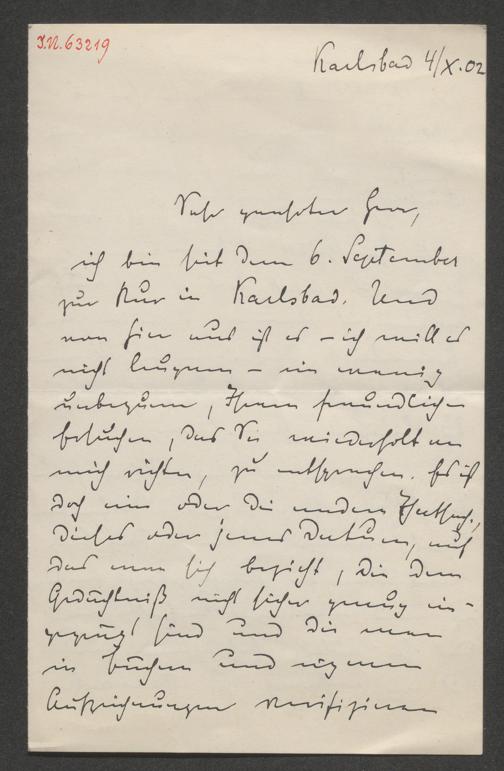 I.N. 63219
Karlsbad 4/X. 02
Sehr geehrter Herr,
ich bin seit dem 6. September
zur Kur in Karlsbad. Und
von hier aus ist es – ich will es
nicht leugnen – ein wenig
unbequem, Ihrem freundlichen
Ersuchen, das Sie wiederholt an
mich richten, zu entsprechen. Es ist
doch eine oder die andere Thatsache,
dieses oder jenes Datum, auf
das man sich bezieht, die dem
Gedächtniß nicht sicher genug ein-
geprägt sind und die man
in Büchern und eigenen
Aufzeichnungen verifiziren